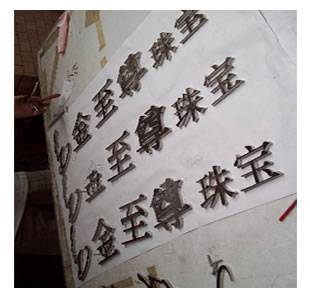 金至尊珠宝
金至尊珠宝
金至尊珠宝